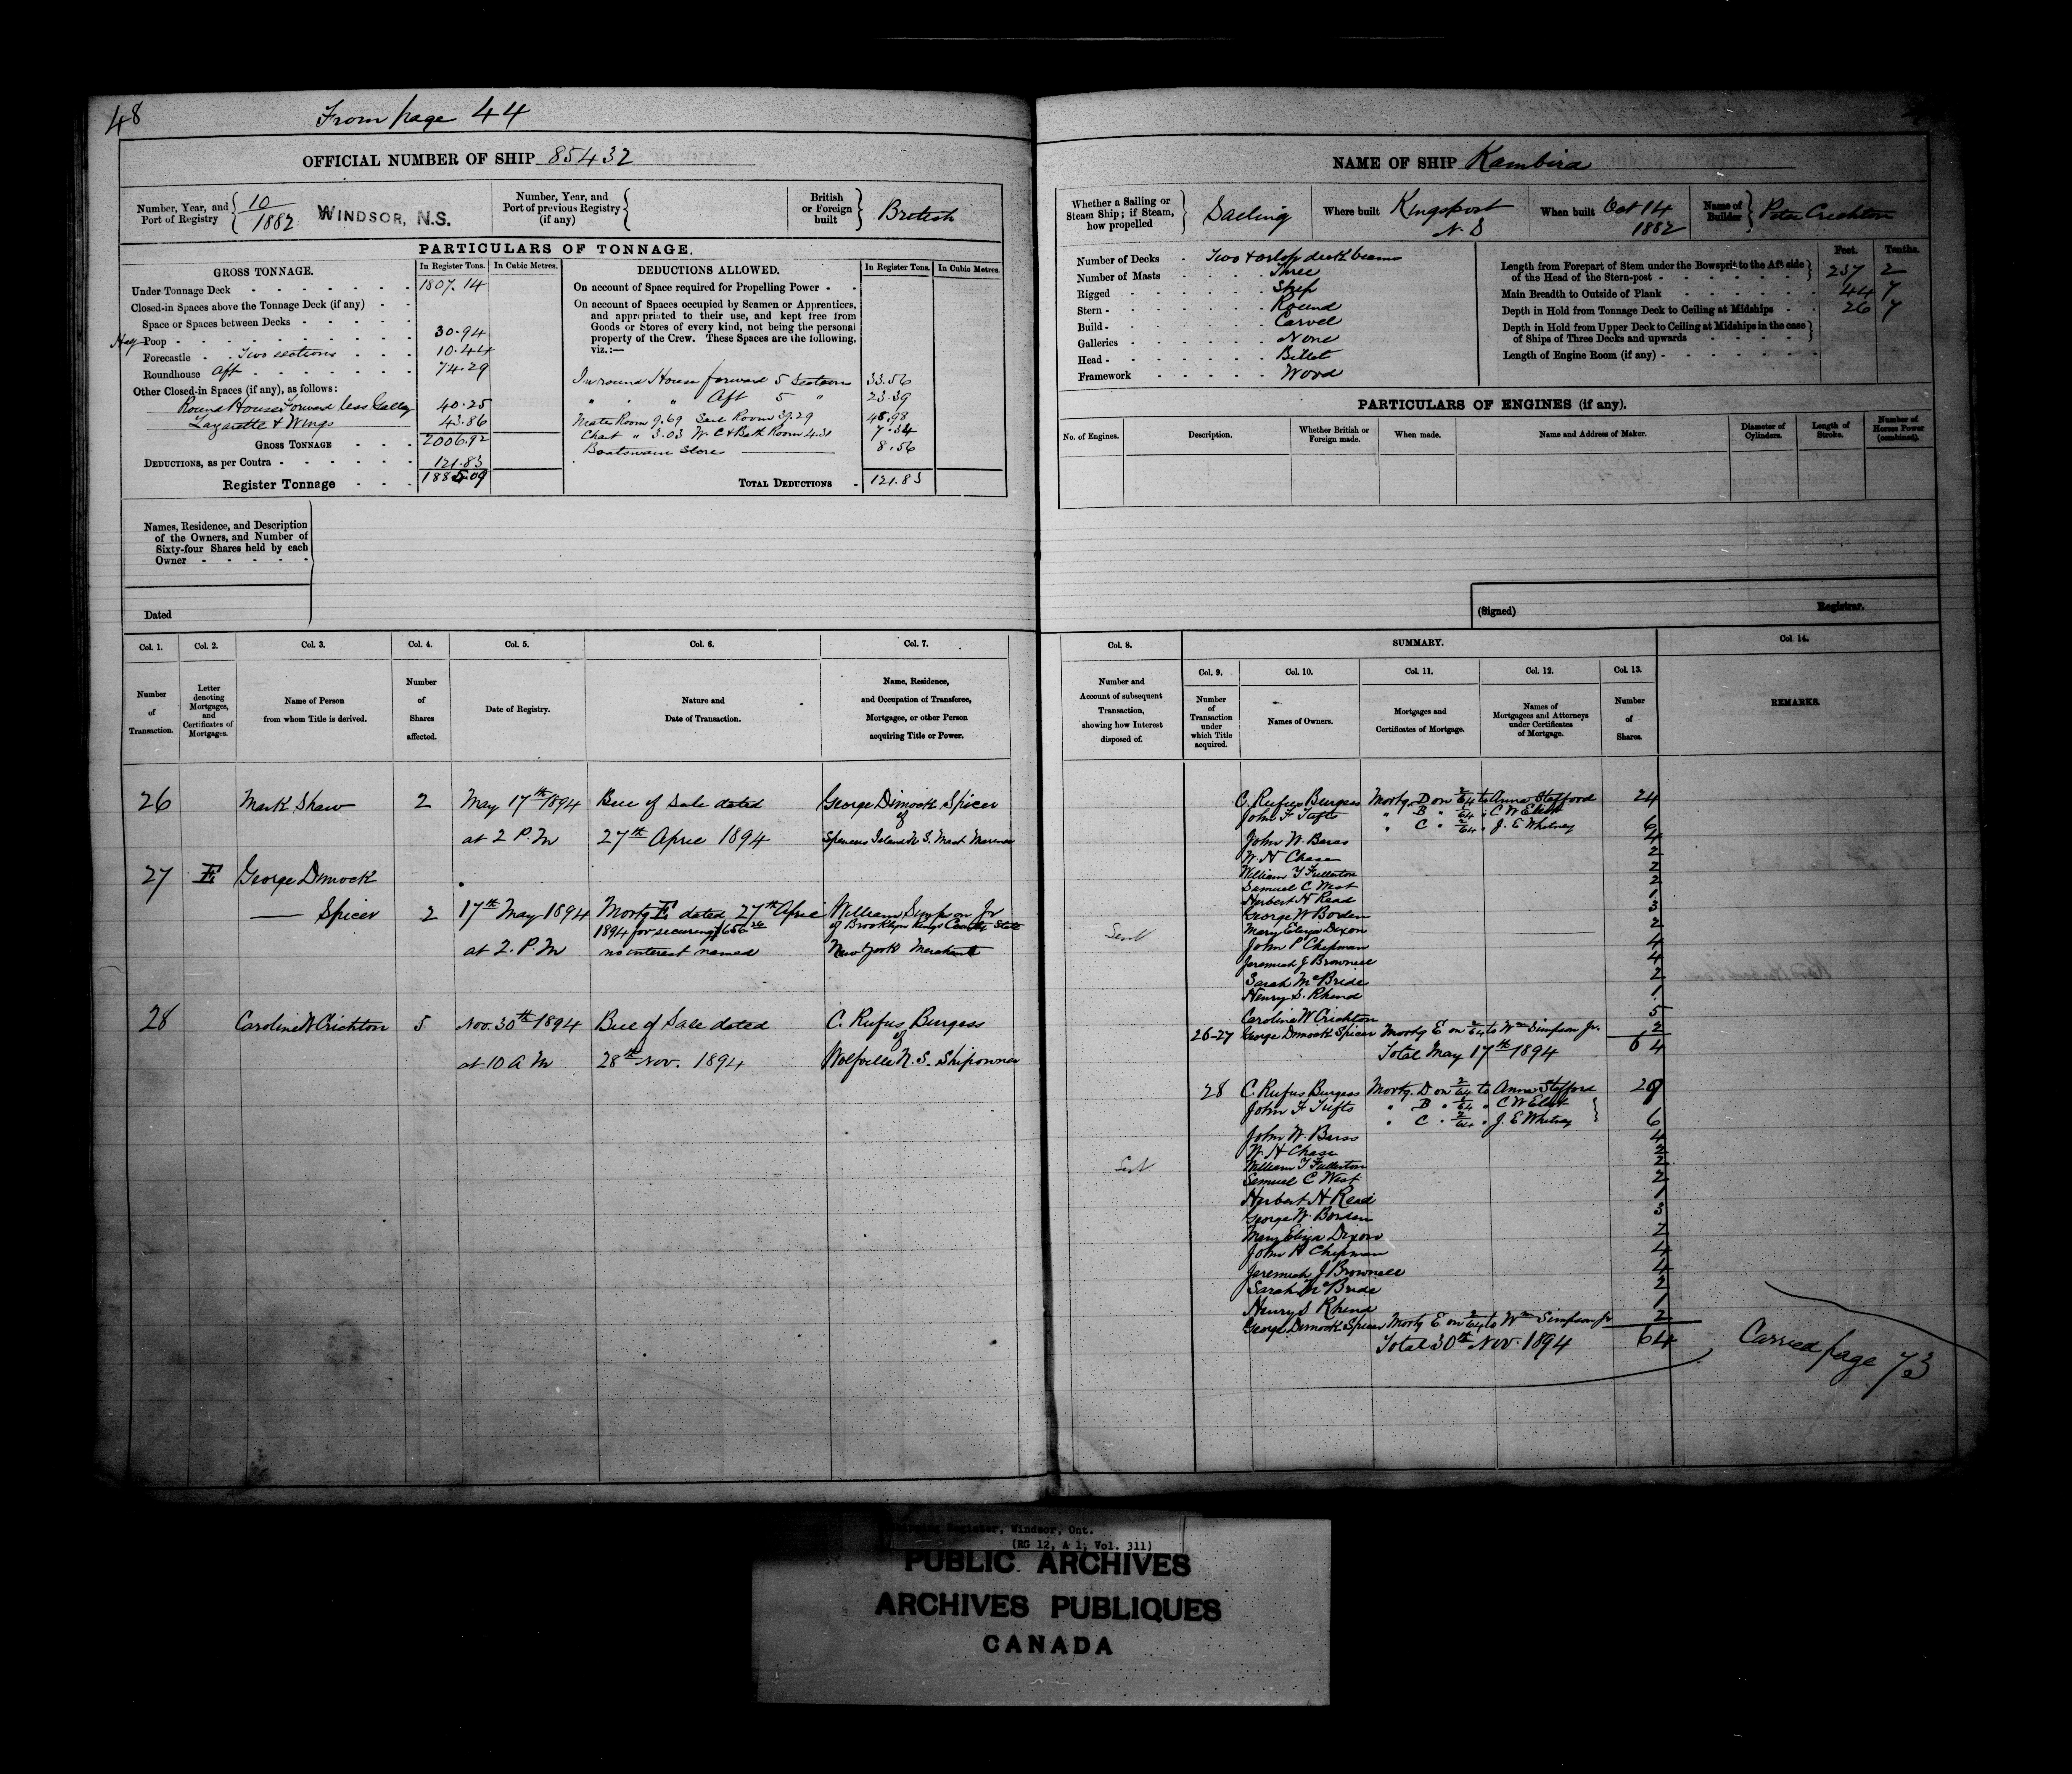 48
From page 44
OFFICIAL NUMBER OF SHIP 85432
Number, Year, and Port of Registry 10/1882 WINDSOR, N.S.
Number, Year, and Port of previous Registry (if any)
British or Foreign built British
PARTICULARS OF TONNAGE.
GROSS TONNAGE. In Register Tons. In Cubic Metres.
Under Tonnage Deck 1807.14
Closed-in Spaces above the Tonnage Deck (if any)
Space or Spaces between Decks
Poop 30.94
Forecastle Two sections 10.44
Roundhouse Aft 74.29
Other Closed-in Spaces (if any), as follows:
Round House Forward less Galley 40.25
Lazarette & Wings 43.86
GROSS TONNAGE 2006.92
DEDUCTIONS, as per Contra 121.83
Register Tonnage 1885.09
DEDUCTIONS ALLOWED. In Register Tons. In Cubic Metres.
On account of Space required for Propelling Power
On account of Spaces occupied by Seamen or Apprentices, and appropriated to their use, and kept free from Goods or Stores of every kind, not being the personal property of the Crew. These Spaces are the following, viz.:—
In round House forward 5 Sections 33.56
" " " Aft 5 " 23.39
Room 9.69 Sail Room 39.29 48.98
Chart " 3.03 W. C & Bath Room 4.31 7.34
Boatswain Store 8.56
TOTAL DEDUCTIONS 121.83
Names, Residence, and Description of the Owners, and Number of Sixty-four Shares held by each Owner
Dated
NAME OF SHIP Kambira
Whether a Sailing or Steam Ship; if Steam, how propelled Sailing
Where built Kingsport N.S
When built Oct 14 1882
Name of Builder Peter Crichton
Number of Decks Two & orlop deck beams
Number of Masts Three
Rigged Ship
Stern Round
Build Carvel
Galleries None
Head Billet
Framework Wood
Feet. Tenths.
Length from Forepart of Stem under the Bowsprit to the Aft side of the Head of the Stern-post 257 2
Main Breadth to Outside of Plank 44 7
Depth in Hold from Tonnage Deck to Ceiling at Midships 26 7
Depth in Hold from Upper Deck to Ceiling at Midships in the case of Ships of Three Decks and upwards
Length of Engine Room (if any)
PARTICULARS OF ENGINES (if any).
No. of Engines. Description. Whether British or Foreign made. When made. Name and Address of Maker. Diameter of Cylinders. Length of Stroke. Number of Horses Power (combined).
(Signed) Registrar.
Col. 1. Col. 2. Col. 3. Col. 4. Col. 5. Col. 6. Col. 7.
Number of Transaction.
Letter denoting Mortgages, and Certificates of Mortgages.
Name of Person from whom Title is derived.
Number of Shares affected.
Date of Registry.
Nature and Date of Transaction.
Name, Residence, and Occupation of Transferee, Mortgagee, or other Person acquiring Title or Power.
26 Mark Shaw 2 May 17th 1894 Bill of Sale dated George Dimock Spicer
of
at 2 P.M 27th April 1894 Spencers Island N.S. Mast Mariner
27 E George Dimock
Spicer 2 17th May 1894 Mortg E dated 27th April William Simpson Jr
1894 for securing $656 of Brooklyn Kings County State
at 2. P.M no interest named New York Merchant
28 Caroline W Crichton 5 Nov. 30th 1894 Bill of Sale dated C. Rufus Burgess
of
at 10 A M 28th Nov. 1894 Wolfville N.S. Shipowner
Col. 8. SUMMARY. Col. 14.
Col. 9. Col. 10. Col. 11. Col. 12. Col. 13.
Number and Account of subsequent Transaction, showing how Interest disposed of.
Number of Transaction under which Title acquired.
Names of Owners.
Mortgages and Certificates of Mortgage.
Names of Mortgagees and Attorneys under Certificates of Mortgage.
Number of Shares.
REMARKS.
C. Rufus Burgess Mortg. D on 2/64 to Anna Stafford 24
John F Tufts " B " 1/64 " C W Eliot
" C " 2/64 " J. E Whitney 6
John W. Barss 4
W. H Chase 2
William T Fullerton 2
Samuel C West 2
Herbert H Read 1
George W Borden 3
Mary Eliza Dixon 2
Sent
John P Chipman 4
Jeremiah J Brownell 4
Sarah McBride 2
Henry S. Rhend 1
Caroline W Crichton 5
26-27 George Dimock Spicer Mortg E on 2/64 to Wm Simpson Jr. 2
Total May 17th 1894 64
28 C. Rufus Burgess Mortg. D on 2/64 to Anna Stafford 29
John F Tufts " B " 1/64 " C W Eliot
" C " 2/64 " J. E Whitney 6
John W. Barss 4
W. H Chase 2
Sent William T Fullerton 2
Samuel C West 2
Herbert H Read 1
George W. Borden 3
Mary Eliza Dixon 2
John P Chipman 4
Jeremiah J Brownell 4
Sarah McBride 2
Henry S Rhend 1
George Dimock Spicer Mortg E on 2/64 to Wm Simpson Jr 2
Total 30th Nov. 1894 64
Carried page 73
Register, Windsor, Ont.
(RG 12, A 1, Vol. 311)
PUBLIC ARCHIVES
ARCHIVES PUBLIQUES
CANADA